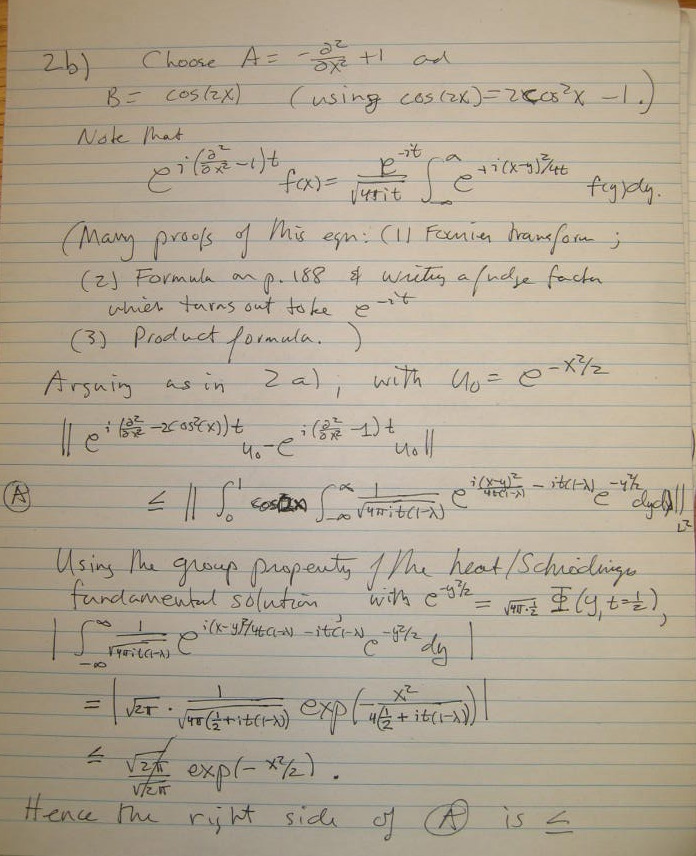 2b) Choose A = -∂²/∂x² + 1 ad
B = cos(2x) (using cos(2x) = 2cos²x - 1.)
Note that
e^{i(∂²/∂x² - 1)t} f(x) = e^{-it}/√(4πit) ∫_{-∞}^{∞} e^{+i(x-y)²/4t} f(y)dy.
(Many proofs of this eqn: (1) Fourier transform;
(2) Formula on p. 188 & writing a fudge factor
which turns out to be e^{-it}
(3) Product formula. )
Arguing as in 2a), with u₀ = e^{-x²/2}
‖ e^{i(∂²/∂x² - 2cos²(x))t} u₀ - e^{i(∂²/∂x² - 1)t} u₀ ‖
Ⓐ ≤ ‖ ∫₀¹ cos2x ∫_{-∞}^{∞} 1/√(4πit(1-λ)) e^{i(x-y)²/4t(1-λ) - it(1-λ)} e^{-y²/2} dydλ ‖_{L²}
Using the group property of the heat/Schrödinger
fundamental solution, with e^{-y²/2} = √(4π·½) Φ(y, t=½),
| ∫_{-∞}^{∞} 1/√(4πit(1-λ)) e^{i(x-y)²/4t(1-λ) - it(1-λ)} e^{-y²/2} dy |
= | √2π · 1/√(4π(½+it(1-λ))) exp(x²/4(½+it(1-λ))) |
≤ √2π/√2π exp(-x²/2).
Hence the right side of Ⓐ is ≤